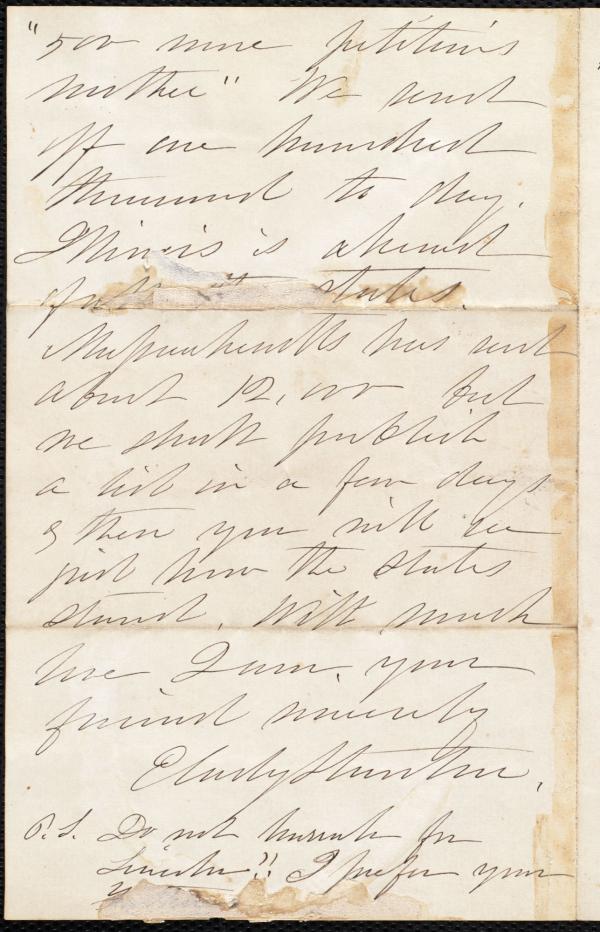 "500 more petitions
mother" We send
off one hundred
thousand to day.
Illinois is ahead
of all the states.
Massachusetts has sent
about 12,000 but
we shall publish
a list in a few days
& then you will see
just how the states
stand. With much
love I am, your
friend sincerely
E Cady Stanton.
P.S. Do not hurrah for
Lincoln!! I prefer your